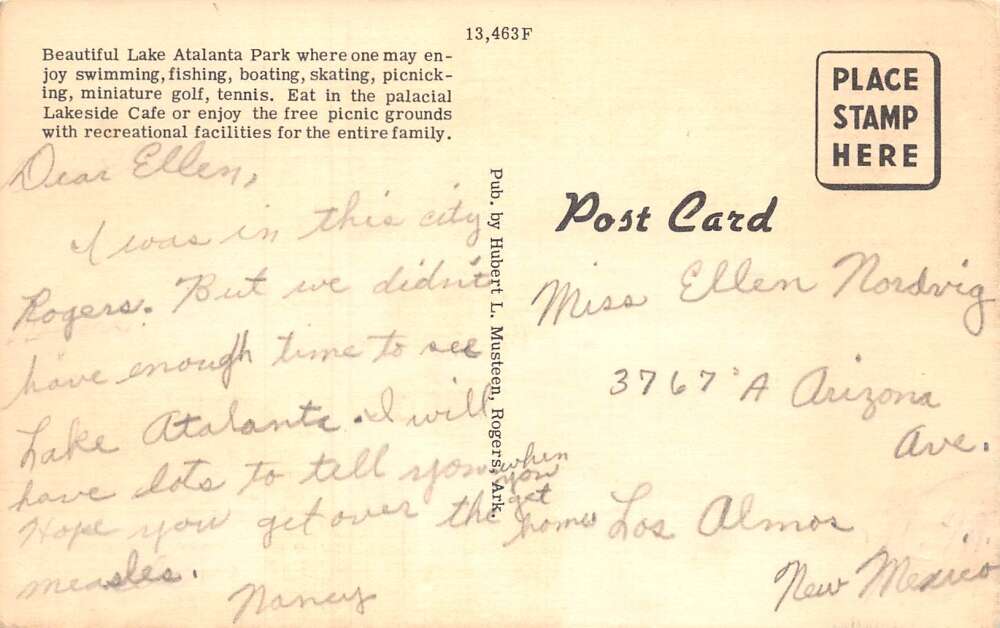 13,463F
Beautiful Lake Atalanta Park where one may en-
joy swimming, fishing, boating, skating, picnick-
ing, miniature golf, tennis. Eat in the palacial
Lakeside Cafe or enjoy the free picnic grounds
with recreational facilities for the entire family.
PLACE
STAMP
HERE
Post Card
Pub. by Hubert L. Musteen, Rogers, Ark.
Dear Ellen,
I was in this city
Rogers. But we didn't
have enough time to see
Lake Atalanta. I will
have lots to tell you when
you
get
home
Hope you get over the
measles.
Nancy
Miss Ellen Nordvig
3767 A Arizona
Ave.
Los Almos
New Mexico